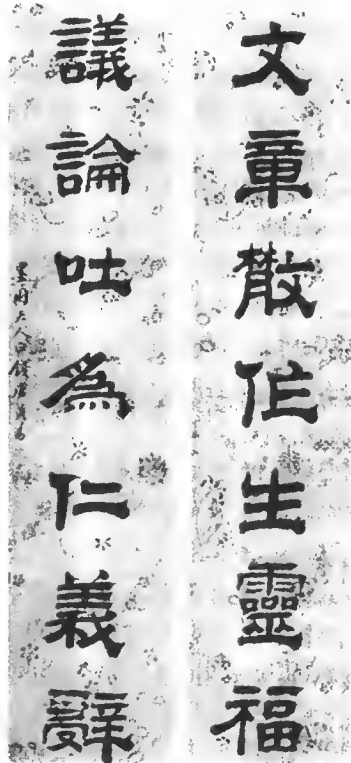 文章散作生靈福
議論吐為仁義辭